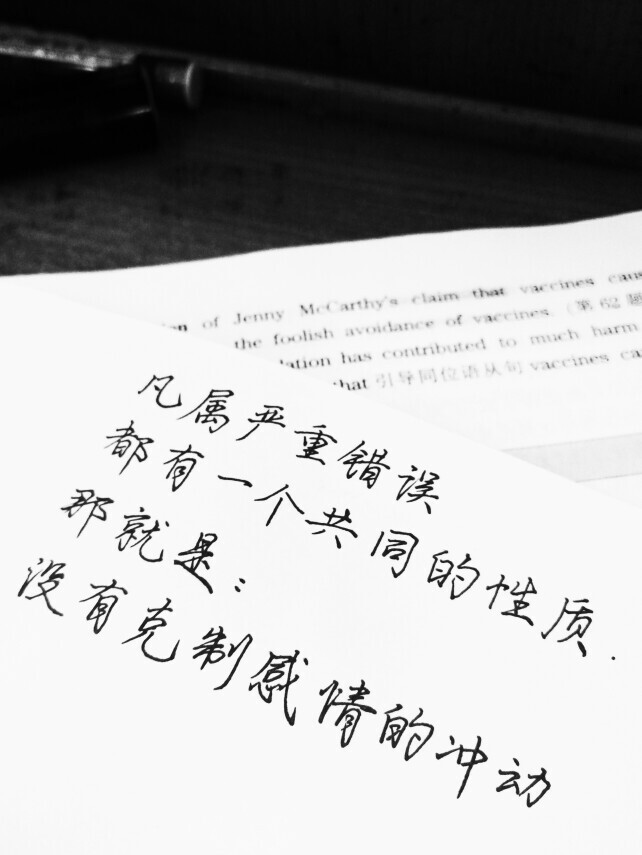 of Jenny McCarthy's claim that vaccines
the foolish avoidance of vaccines. (第 62 题
has contributed to much harm
that 引导同位语从句 vaccines
凡属严重错误
都有一个共同的性质.
那就是：
没有克制感情的冲动